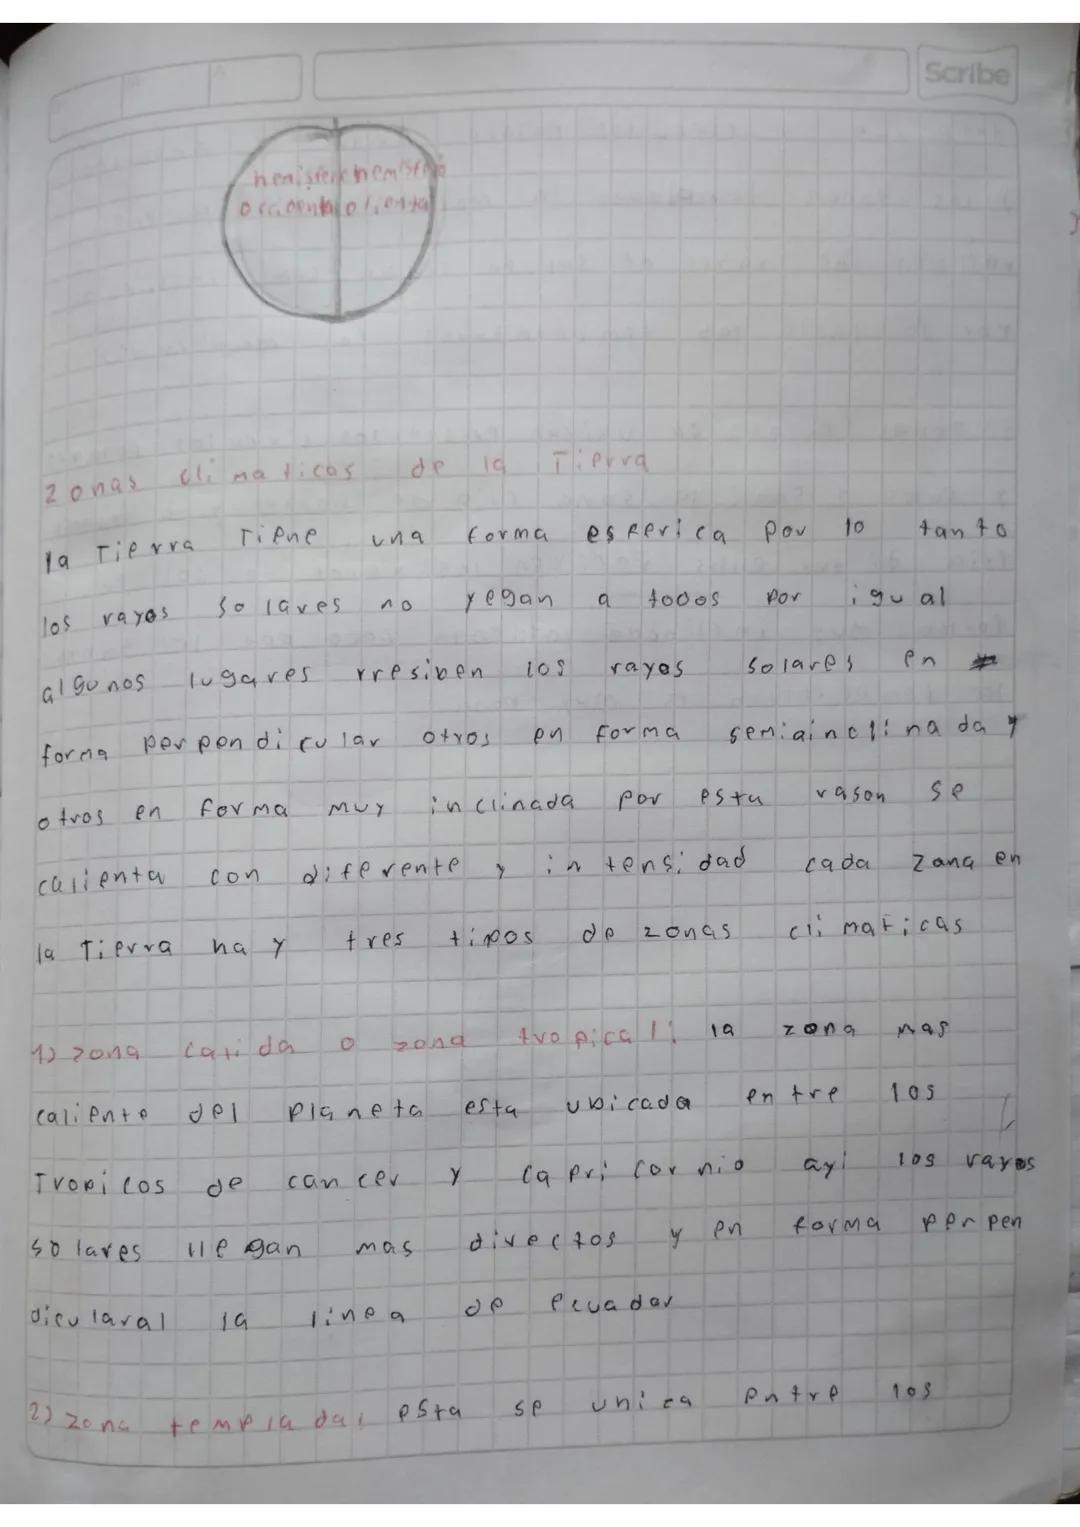 Scribe
hemisferi hemisferio
occidental oriental
Zonas climaticas de la Tierra
la Tierra Tiene una forma esferica por lo tanto
los rayos solares no yegan a todos por igual
algunos lugares rresiben los rayos solares en
forma perpendicular otros en forma semiainclinada y
otros en forma muy inclinada por esta rason se
calienta con diferente y intensidad cada zona en
la Tierra hay tres tipos de zonas climaticas
1) zona calida o zona tropical: la zona mas
caliente del planeta esta ubicada entre los
Tropicos de cancer y capricornio ayi los rayos
solares llegan mas directos y en forma perpen
dicularal la linea de ecuador
2) zona templada: esta se unica entre los